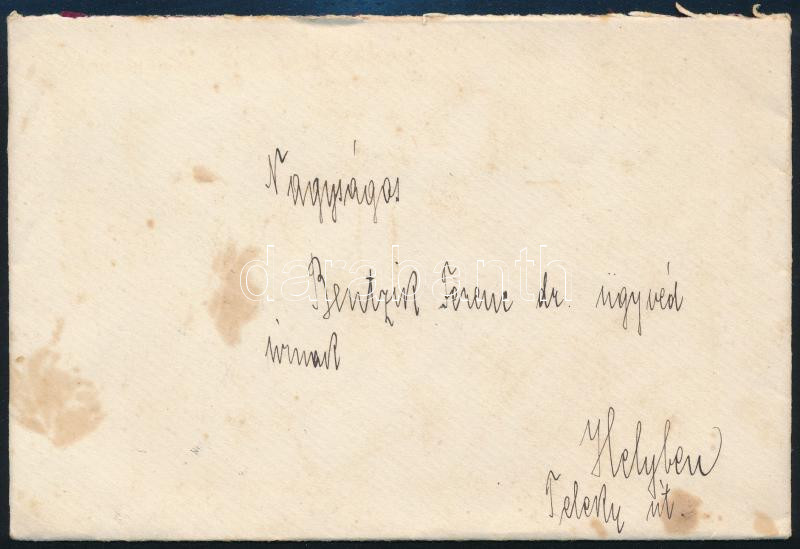 Nagyságos
Bentzik Ferenc dr. ügyvéd
úrnak
Helyben
Teleky út.
darabanth.com